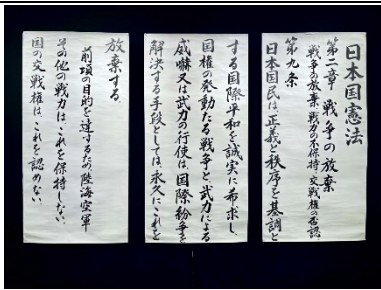 日本国憲法
第二章 戦争の放棄
戦争の放棄、戦力の不保持、交戦権の否認
第九条
日本国民は、正義と秩序を基調と
する国際平和を誠実に希求し、
国権の発動たる戦争と、武力による
威嚇又は武力の行使は、国際紛争を
解決する手段としては、永久にこれを
放棄する。
前項の目的を達するため、陸海空軍
その他の戦力は、これを保持しない。
国の交戦権は、これを認めない。